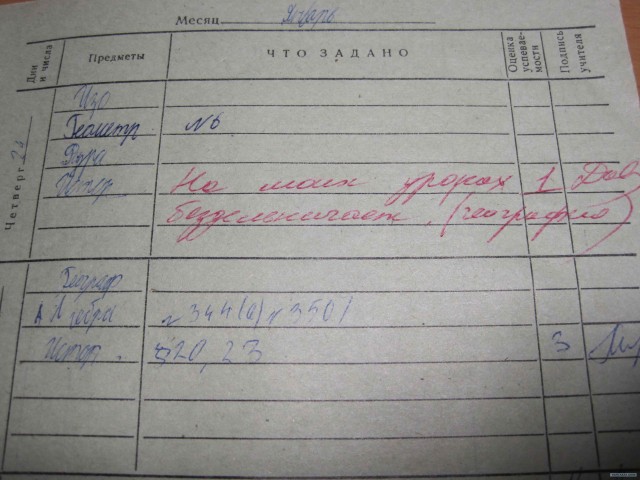 Месяц Январь
Дни и числа Предметы ЧТО ЗАДАНО Оценка успеваемости Подпись учителя
Четверг 23
Изо
Геометр №6
Физра
Истор На моих уроках 1
бездельничает. (география)
Географ
Алгебра №344(а) №350
Истор. §20, 23 3